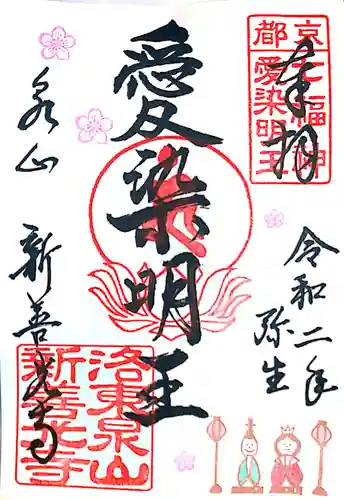 奉拝
京都七福神
愛染明王
令和二年
弥生
愛染明王
泉山
新善光寺
洛東泉山
新善光寺